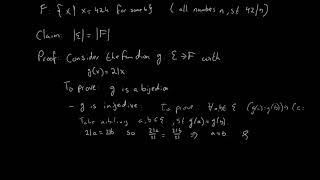 F: { x | x = 42k for some k } ( all numbers n, st 42/n )
Claim: |E| = |F|
Proof: Consider the function g: E → F with
g(x) = 21x
To prove: g is a bijection
- g is injective: To prove: ∀a,b∈E (g(a)=g(b)) → (a=
Take arbitrary a,b∈E, st g(a)=g(b)
21a = 21b so 21a/21 = 21b/21 ⇒ a=b